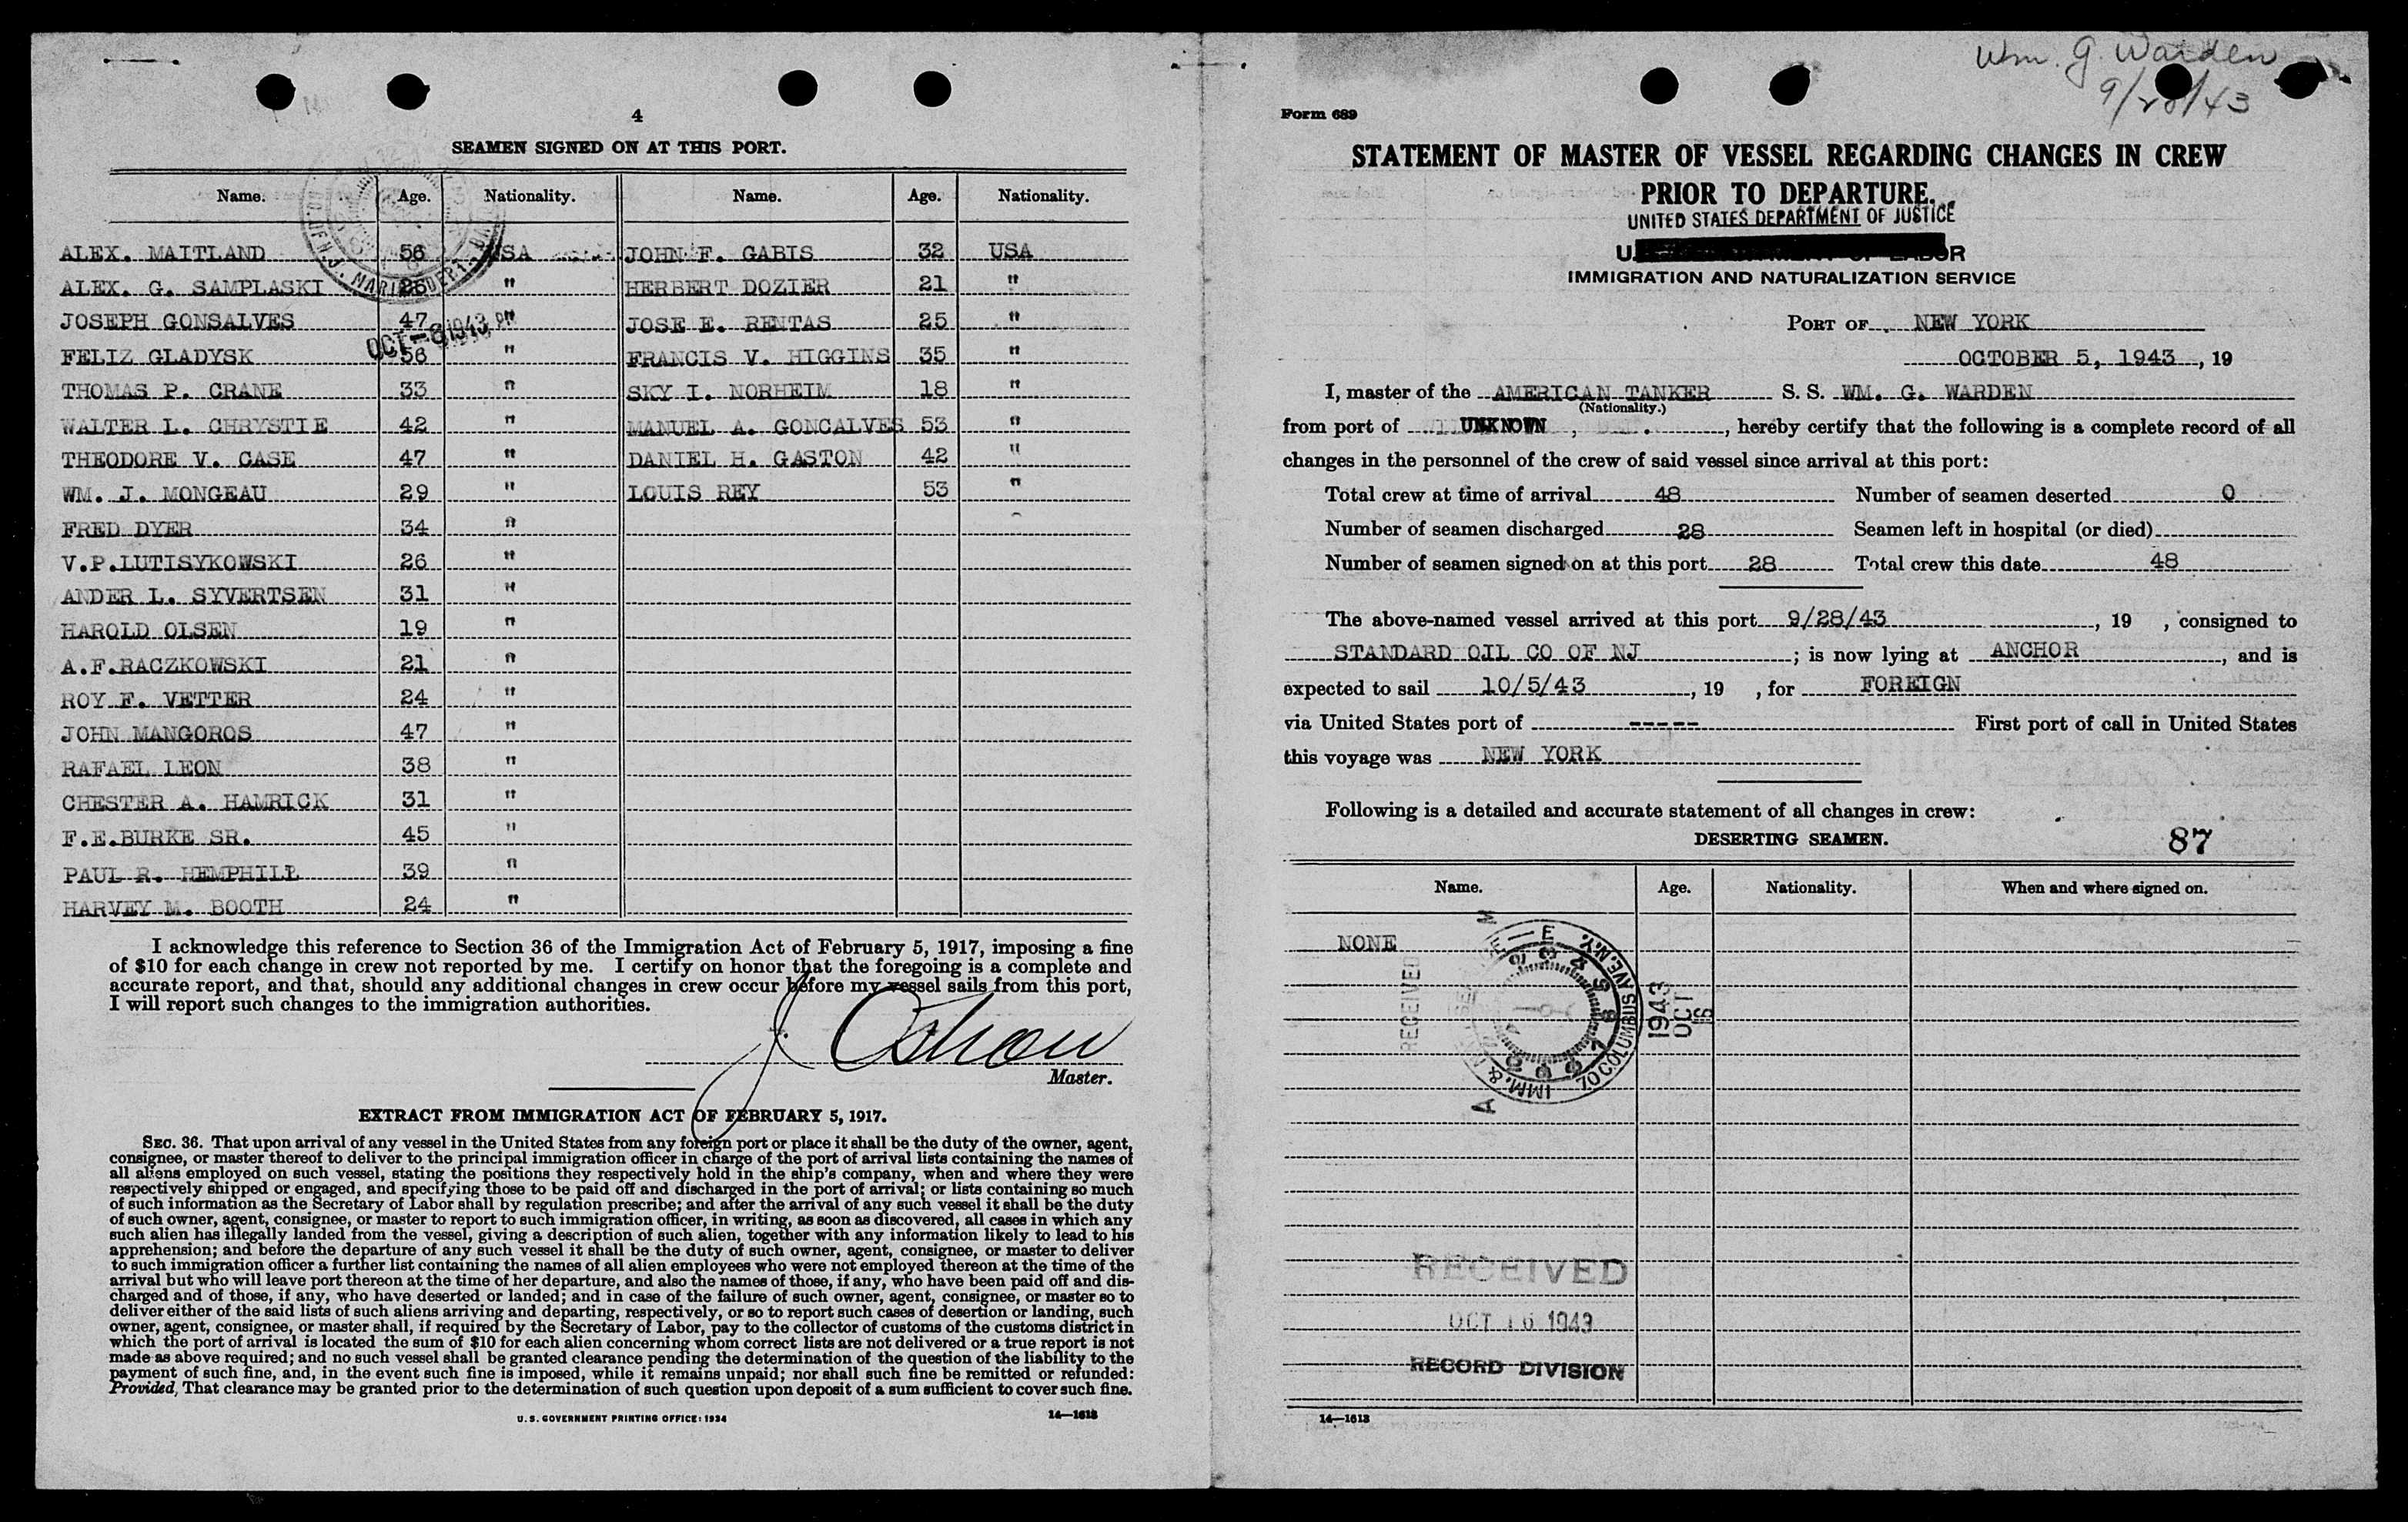 4
SEAMEN SIGNED ON AT THIS PORT.
Name. Age. Nationality. Name. Age. Nationality.
ALEX. MAITLAND 56 USA JOHN F. GABIS 32 USA
ALEX. G. SAMPLASKI 26 " HERBERT DOZIER 21 "
JOSEPH GONSALVES 47 " JOSE E. RENTAS 25 "
FELIZ GLADYSK 56 " FRANCIS V. HIGGINS 35 "
THOMAS P. CRANE 33 " SKY I. NORHEIM 18 "
WALTER L. CHRYSTIE 42 " MANUEL A. GONCALVES 53 "
THEODORE V. CASE 47 " DANIEL H. GASTON 42 "
WM. J. MONGEAU 29 " LOUIS REY 53 "
FRED DYER 34 "
V.P.LUTISYKOWSKI 26 "
ANDER L. SYVERTSEN 31 "
HAROLD OLSEN 19 "
A.F.RACZKOWSKI 21 "
ROY F. VETTER 24 "
JOHN MANGOROS 47 "
RAFAEL LEON 38 "
CHESTER A. HAMRICK 31 "
F.E.BURKE SR. 45 "
PAUL R. HEMPHILL 39 "
HARVEY M. BOOTH 24 "
OCT -8 1943 PM
I acknowledge this reference to Section 36 of the Immigration Act of February 5, 1917, imposing a fine
of $10 for each change in crew not reported by me. I certify on honor that the foregoing is a complete and
accurate report, and that, should any additional changes in crew occur before my vessel sails from this port,
I will report such changes to the immigration authorities.
Master.
EXTRACT FROM IMMIGRATION ACT OF FEBRUARY 5, 1917.
SEC. 36. That upon arrival of any vessel in the United States from any foreign port or place it shall be the duty of the owner, agent,
consignee, or master thereof to deliver to the principal immigration officer in charge of the port of arrival lists containing the names of
all aliens employed on such vessel, stating the positions they respectively hold in the ship's company, when and where they were
respectively shipped or engaged, and specifying those to be paid off and discharged in the port of arrival; or lists containing so much
of such information as the Secretary of Labor shall by regulation prescribe; and after the arrival of any such vessel it shall be the duty
of such owner, agent, consignee, or master to report to such immigration officer, in writing, as soon as discovered, all cases in which any
such alien has illegally landed from the vessel, giving a description of such alien, together with any information likely to lead to his
apprehension; and before the departure of any such vessel it shall be the duty of such owner, agent, consignee, or master to deliver
to such immigration officer a further list containing the names of all alien employees who were not employed thereon at the time of the
arrival but who will leave port thereon at the time of her departure, and also the names of those, if any, who have been paid off and dis-
charged and of those, if any, who have deserted or landed; and in case of the failure of such owner, agent, consignee, or master so to
deliver either of the said lists of such aliens arriving and departing, respectively, or so to report such cases of desertion or landing, such
owner, agent, consignee, or master shall, if required by the Secretary of Labor, pay to the collector of customs of the customs district in
which the port of arrival is located the sum of $10 for each alien concerning whom correct lists are not delivered or a true report is not
made as above required; and no such vessel shall be granted clearance pending the determination of the question of the liability to the
payment of such fine, and, in the event such fine is imposed, while it remains unpaid; nor shall such fine be remitted or refunded:
Provided, That clearance may be granted prior to the determination of such question upon deposit of a sum sufficient to cover such fine.
U. S. GOVERNMENT PRINTING OFFICE: 1934 14—1613
Wm. G. Warden
9/28/43
Form 689
STATEMENT OF MASTER OF VESSEL REGARDING CHANGES IN CREW
PRIOR TO DEPARTURE.
UNITED STATES DEPARTMENT OF JUSTICE
IMMIGRATION AND NATURALIZATION SERVICE
PORT OF NEW YORK
OCTOBER 5, 1943, 19
I, master of the AMERICAN TANKER S. S. WM. G. WARDEN
(Nationality.)
from port of UNKNOWN, hereby certify that the following is a complete record of all
changes in the personnel of the crew of said vessel since arrival at this port:
Total crew at time of arrival 48 Number of seamen deserted 0
Number of seamen discharged 28 Seamen left in hospital (or died)
Number of seamen signed on at this port 28 Total crew this date 48
The above-named vessel arrived at this port 9/28/43, 19 , consigned to
STANDARD OIL CO OF NJ; is now lying at ANCHOR, and is
expected to sail 10/5/43, 19 , for FOREIGN
via United States port of ----- First port of call in United States
this voyage was NEW YORK
Following is a detailed and accurate statement of all changes in crew:
DESERTING SEAMEN. 87
Name. Age. Nationality. When and where signed on.
NONE
RECEIVED
70 COLUMBUS AVE. N.Y.
1943
OCT
RECEIVED
OCT 16 1943
RECORD DIVISION
14—1613